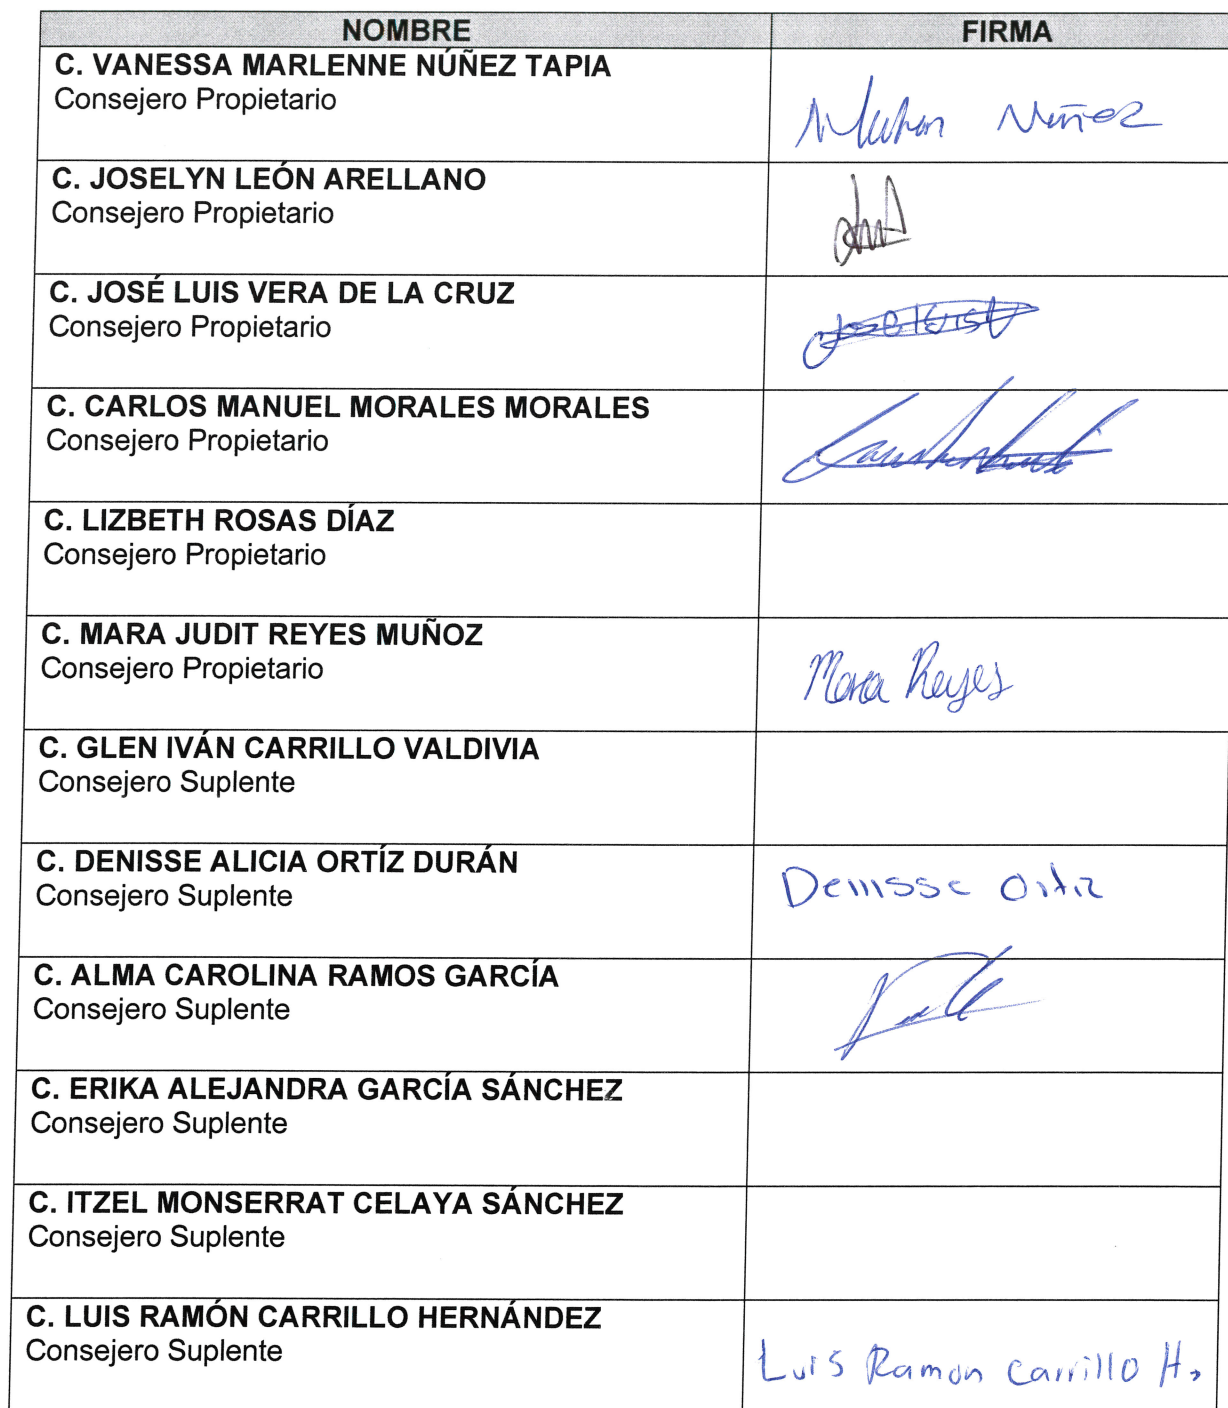 NOMBRE
FIRMA
C. VANESSA MARLENNE NÚÑEZ TAPIA
Consejero Propietario
Nuñez
C. JOSELYN LEÓN ARELLANO
Consejero Propietario
C. JOSÉ LUIS VERA DE LA CRUZ
Consejero Propietario
C. CARLOS MANUEL MORALES MORALES
Consejero Propietario
C. LIZBETH ROSAS DÍAZ
Consejero Propietario
C. MARA JUDIT REYES MUÑOZ
Consejero Propietario
Mara Reyes
C. GLEN IVÁN CARRILLO VALDIVIA
Consejero Suplente
C. DENISSE ALICIA ORTÍZ DURÁN
Consejero Suplente
Denisse Ortiz
C. ALMA CAROLINA RAMOS GARCÍA
Consejero Suplente
C. ERIKA ALEJANDRA GARCÍA SÁNCHEZ
Consejero Suplente
C. ITZEL MONSERRAT CELAYA SÁNCHEZ
Consejero Suplente
C. LUIS RAMÓN CARRILLO HERNÁNDEZ
Consejero Suplente
Luis Ramon Carrillo H.